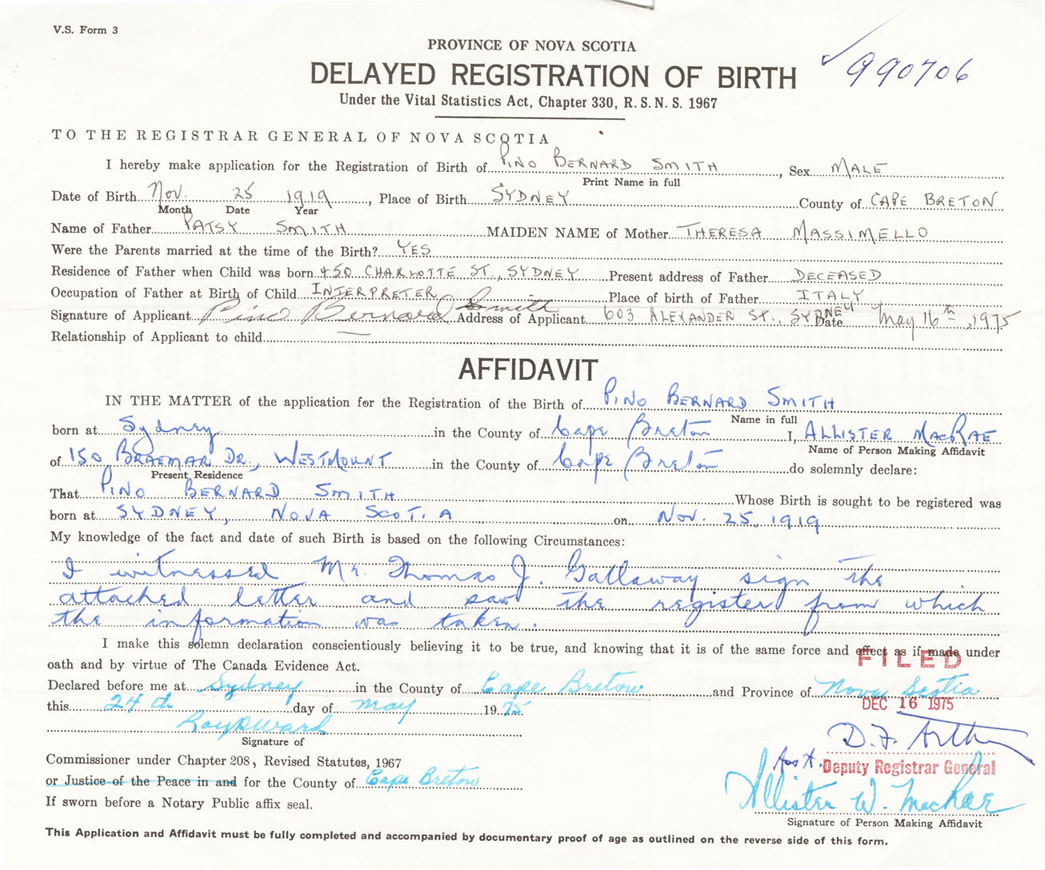 V.S. Form 3
PROVINCE OF NOVA SCOTIA
DELAYED REGISTRATION OF BIRTH
990706
Under the Vital Statistics Act, Chapter 330, R.S.N.S. 1967
TO THE REGISTRAR GENERAL OF NOVA SCOTIA
I hereby make application for the Registration of Birth of PINO BERNARD SMITH, Sex MALE
Print Name in full
Date of Birth Nov. 25 1919, Place of Birth SYDNEY County of CAPE BRETON
Month Date Year
Name of Father PATSY SMITH MAIDEN NAME of Mother THERESA MASSIMELLO
Were the Parents married at the time of the Birth? YES
Residence of Father when Child was born 450 CHARLOTTE ST., SYDNEY Present address of Father DECEASED
Occupation of Father at Birth of Child INTERPRETER Place of birth of Father ITALY
Signature of Applicant Pino Bernard Smith Address of Applicant 603 ALEXANDER ST., SYDNEY Date May 16th, 1975
Relationship of Applicant to child —
AFFIDAVIT
IN THE MATTER of the application for the Registration of the Birth of PINO BERNARD SMITH
Name in full
born at Sydney in the County of Cape Breton I, ALLISTER MACRAE
Name of Person Making Affidavit
of 150 BRAEMAR DR., WESTMOUNT in the County of Cape Breton do solemnly declare:
Present Residence
That PINO BERNARD SMITH Whose Birth is sought to be registered was
born at SYDNEY, NOVA SCOTIA on Nov. 25, 1919
My knowledge of the fact and date of such Birth is based on the following Circumstances:
I witnessed Mr. Thomas J. Gallaway sign the
attached letter and saw the register from which
the information was taken.
I make this solemn declaration conscientiously believing it to be true, and knowing that it is of the same force and effect as if made under
FILED
oath and by virtue of The Canada Evidence Act.
Declared before me at Sydney in the County of Cape Breton and Province of Nova Scotia
this 24th day of May 1975.
DEC 16 1975
Signature of
D.F. Arthur
Commissioner under Chapter 208, Revised Statutes, 1967
Asst. Deputy Registrar General
or Justice of the Peace in and for the County of Cape Breton
Allister W. MacRae
If sworn before a Notary Public affix seal.
Signature of Person Making Affidavit
This Application and Affidavit must be fully completed and accompanied by documentary proof of age as outlined on the reverse side of this form.